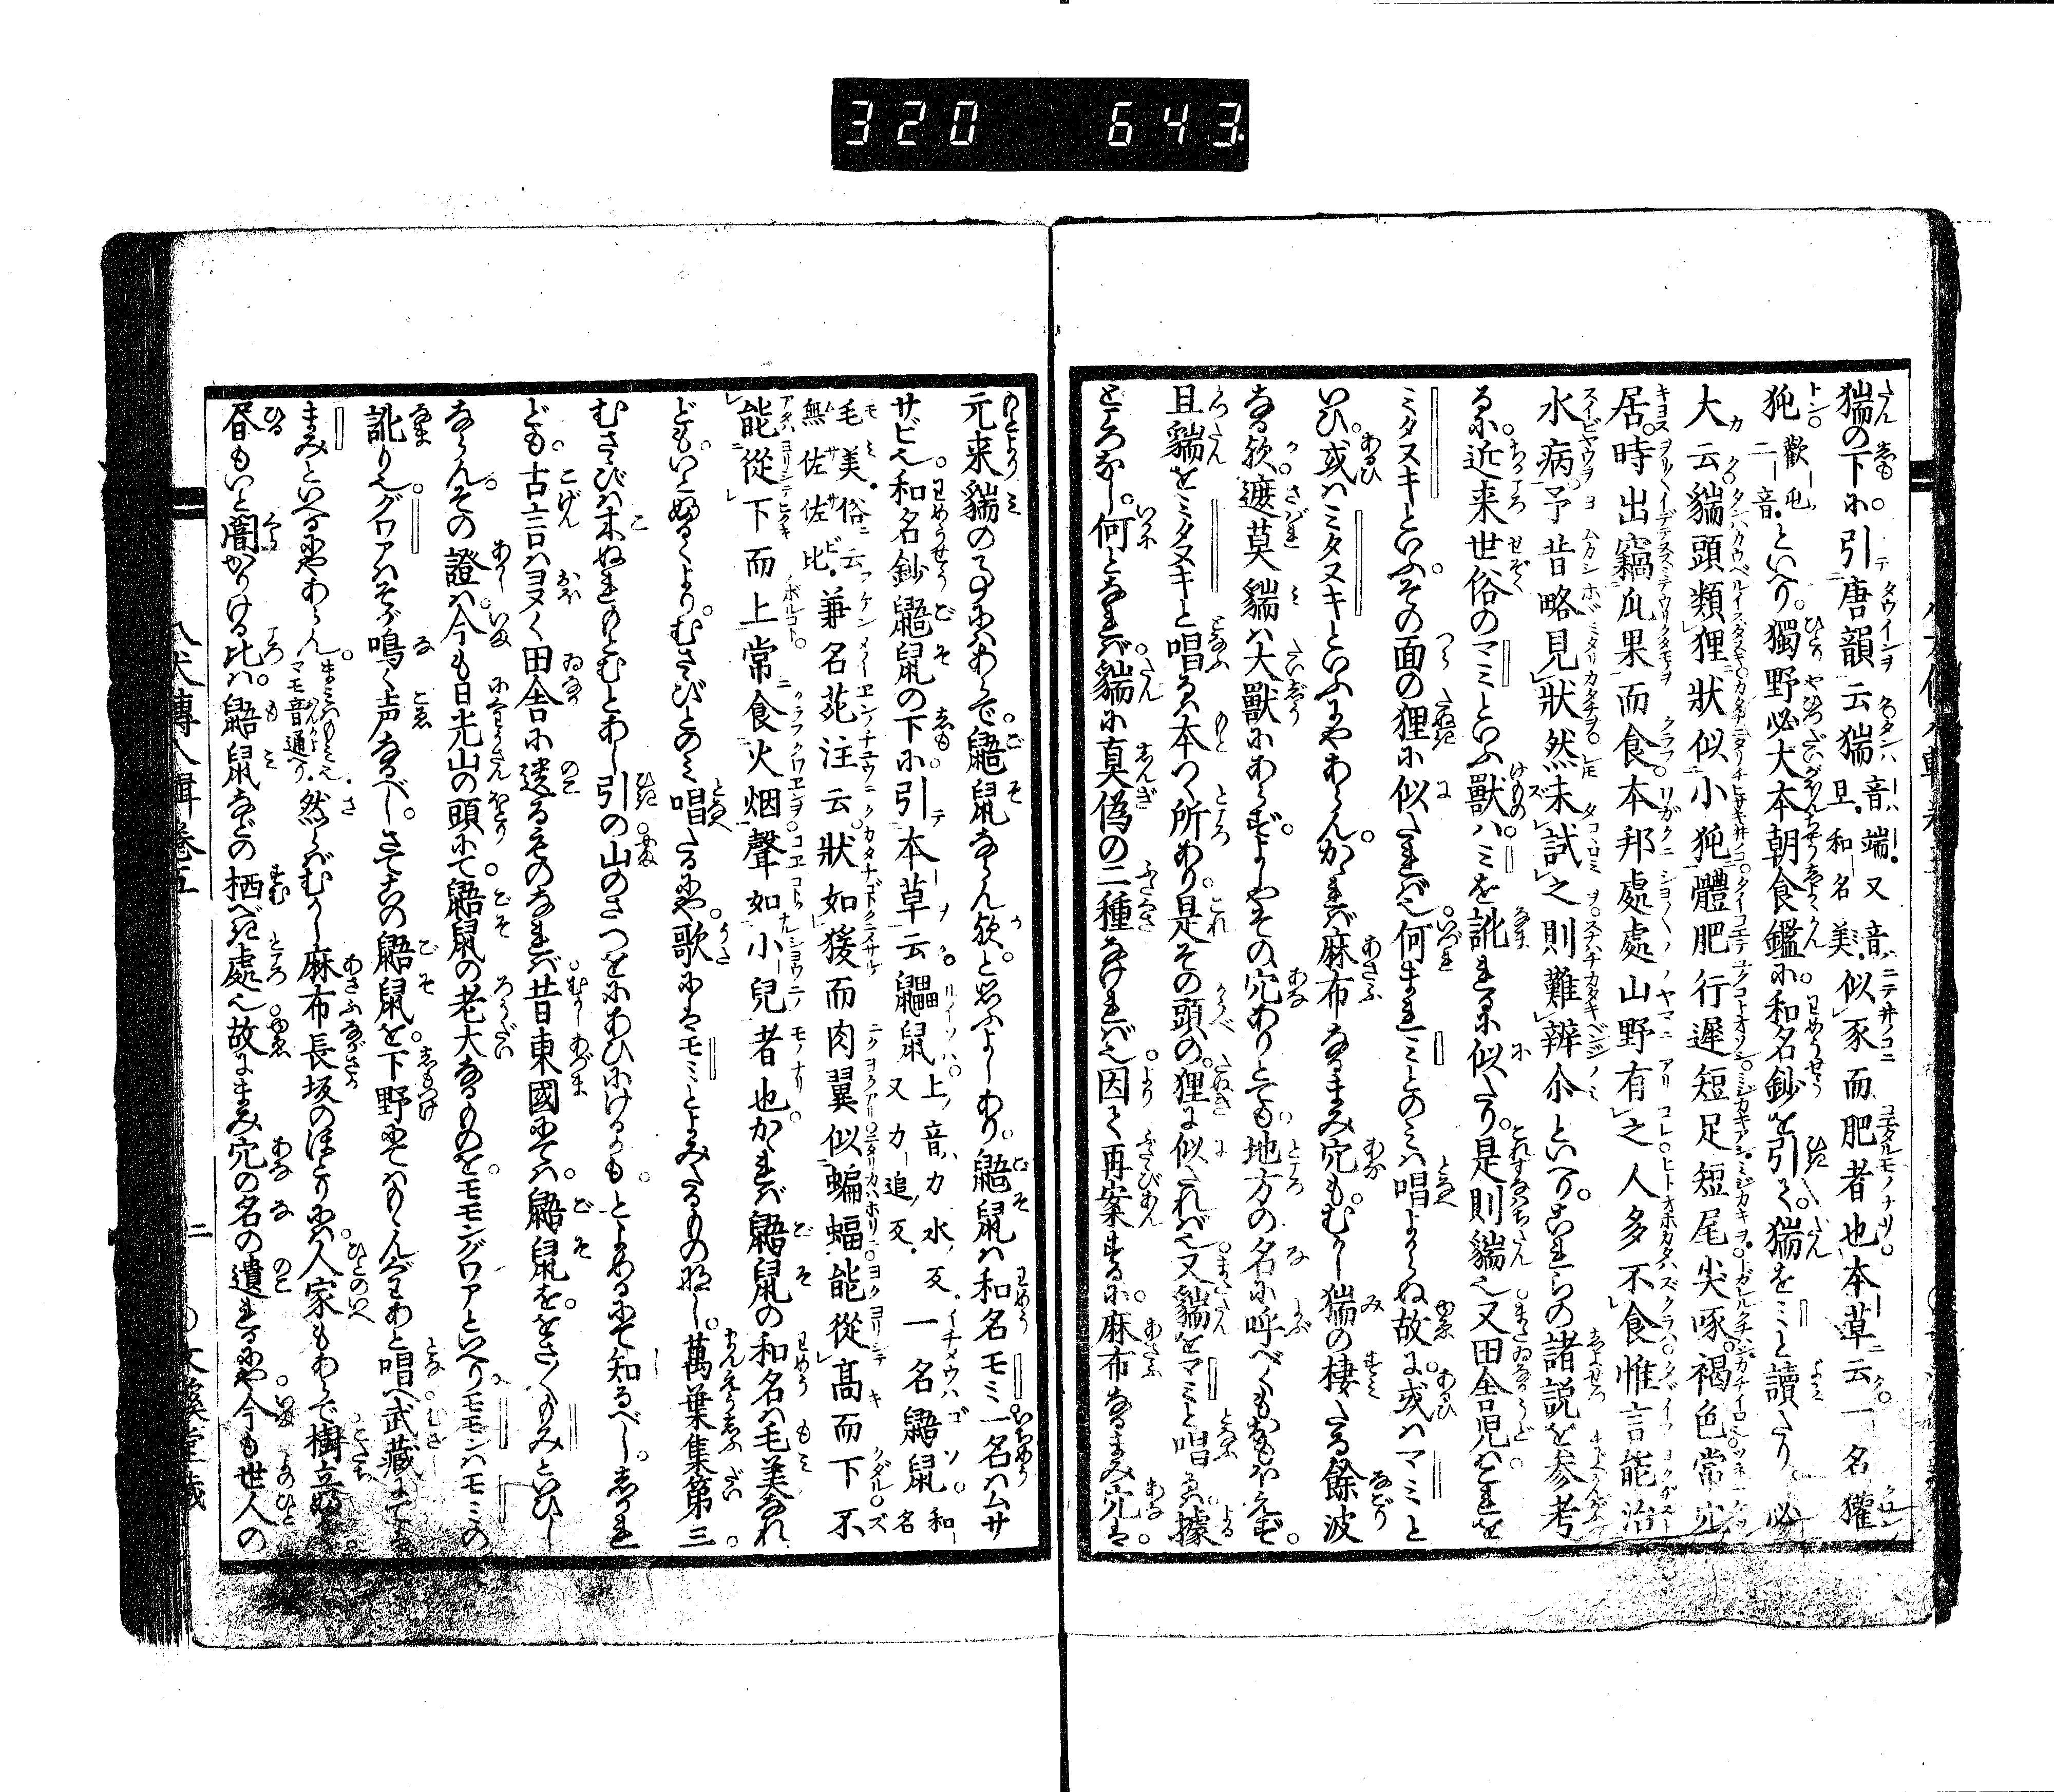 320 643
猯の下に。引唐韻云猯音端。又音旦。和名美。似豕而肥者也本草云一名獾
㹠歡㹠二音。といへり。獨野必大本朝食鑑に。和名鈔を引て。猯をミと讀たり。必
大云貒頭類狸狀似小㹠體肥行遲短足短尾尖喙褐色常穴
居。時出竊瓜果而食本邦處處山野有之人多不食惟言能治
水病。予昔略見狀然未試之則難辨尒といへり。これらの諸説を参考
るに。近来世俗のマミといふ獣ハ。ミを訛れるに似たり。是則貒也又田舎児ハこれを
ミタヌキといふ。その面の狸に似たれば也何まれミとのミハ唱よからぬ故に。或ハマミと
いひ。或ハミタヌキといふにやあらん。かゝれバ麻布なるまみ穴も。むかし猯の棲たる餘波
なる歟。遮莫貒ハ大獣にあらず。よしやその穴ありとても。地方の名に呼べくもおもほえず。
且貒をミタヌキと唱るハ本つく所あり。是その頭の。狸に似たれバ也。又貒をマミと唱るハ據
ところなし。何となれバ貒に真偽の二種なけれバ也因て再案するに。麻布なるまみ穴は。
元来貒の事にハあらで。鼯鼠ならん歟。と思ふよしあり。鼯鼠ハ和名モミ一名ハムサ
サビ也。和名鈔鼯鼠の下に。引本草云鼺鼠上音力水反。又力追反。一名鼯鼠和名
毛美。俗云無佐佐比。兼名苑注云狀如猨而肉翼似蝙蝠能從高而下不
能從下而上常食火烟聲如小兒者也かゝれバ鼯鼠の和名ハ毛美なれ
ども。いとふるくより。むさゝびとのミ唱たるにや。歌にはモミとよみたるもの稀し。萬葉集第三。
むさゝびハ木ぬれもとむとあし引の山のさつをにあひにけるかも。とよめるにて知るべし。しかれ
ども。古言ハヨヌく田舎に遺るものなれバ昔東國にてハ。鼯鼠を。をさ〳〵もみといひし
ならん。その證ハ今も日光山の頭にて。鼯鼠の老大なるものを。モモングワアといへり。モモンハモミの
訛り也。グワアハそが鳴く声なるべし。さてこの鼯鼠を。下野にてハもゝんぐわあと唱へ武藏にてハ
まみといへるにやあらん。まみハもみ也マモ音通へり。然らバむかし麻布長坂のほとりにハ。人家もあらで。樹立ふかく。
昼もいと闇かりける比ハ。鼯鼠などの栖べき處也故にまみ穴の名の遺れるにや今も世人の
八犬傳八輯巻五 二 文溪堂藏